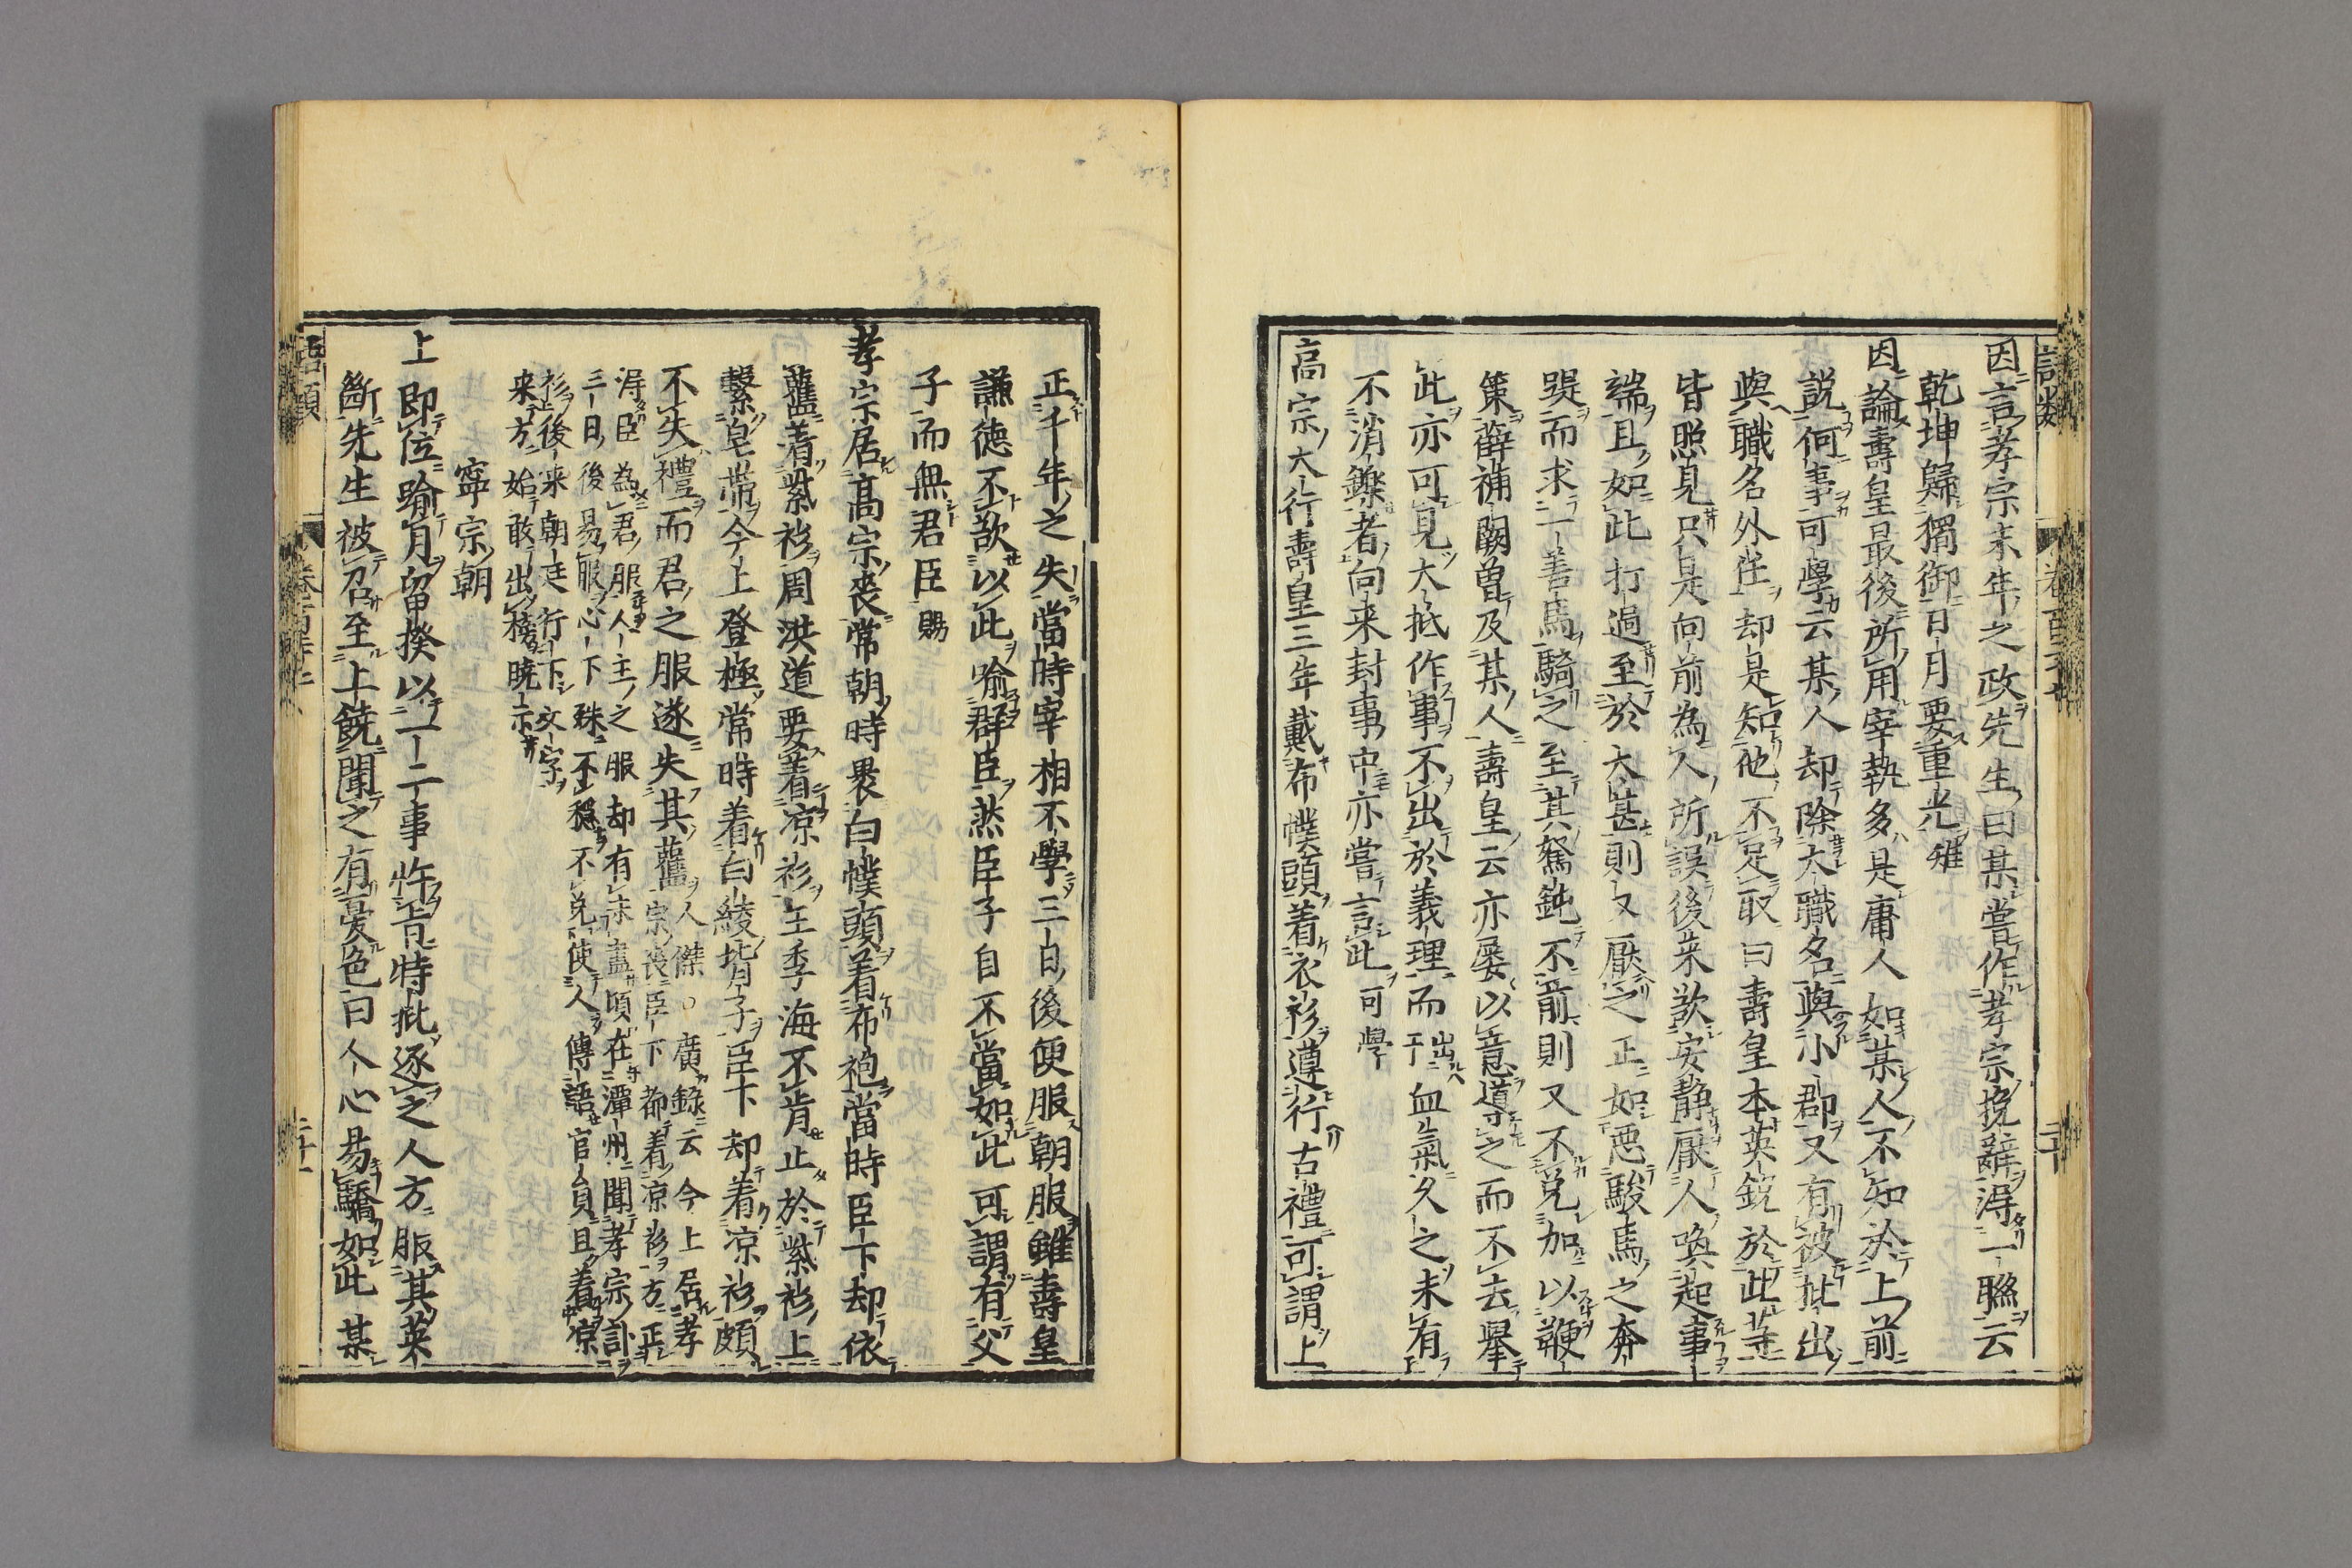 因言孝宗末年之政先生曰某嘗作孝宗挽辭得一聯云
乾坤歸獨御日月要重光 雉
因論壽皇最後所用宰執多是庸人如某人不知於上前
説何事可學云某人却除大職名與小郡又有被批出
與職名外任却是知他不足取曰壽皇本英鋭於此等
皆照見只是向前為人所誤後来欲安静厭人喚起事
端且如此打過至於大甚則又厭之正如惡駿馬之奔
踶而求一善馬騎之至其駑鈍不前則又不免加以鞭
策薛補闕曽及某人壽皇云亦屡以意導之而不去舉
此亦可見大抵作事不出於義理而出於血氣久之未有
不消鑠者向来封事中亦嘗言此 可學
高宗大行壽皇三年戴布幞頭着衣衫遵行古禮可謂上
正千年之失當時宰相不學三日後便服朝服雖壽皇
謙德不欲以此喻群臣然臣子自不當如此可謂有父
子而無君臣 賜
孝宗居高宗喪常朝時裹白幞頭着布袍當時臣下却依
舊着紫衫周洪道要着凉衫王季海不肯止於紫衫上
繫皂帶今上登極常時着白綾背子臣下却着凉衫頗
不失禮而君之服遂失其舊 人傑〇廣録云今上居孝
宗喪臣下都着凉衫方正
得臣為君服人主之服却有未盡頃在潭州聞孝宗訃
三日後易服心下殊不穩不免使人傳語官員且着凉
衫後来朝廷行下文字
来方始敢出榜曉示
寧宗朝
上即位踰月留揆以一二事忤旨特批逐之人方服其英
斷先生被召至上饒聞之有憂色曰人心易驕如此某
語類
卷百二十七
三十
語類
卷百二十七
三十一